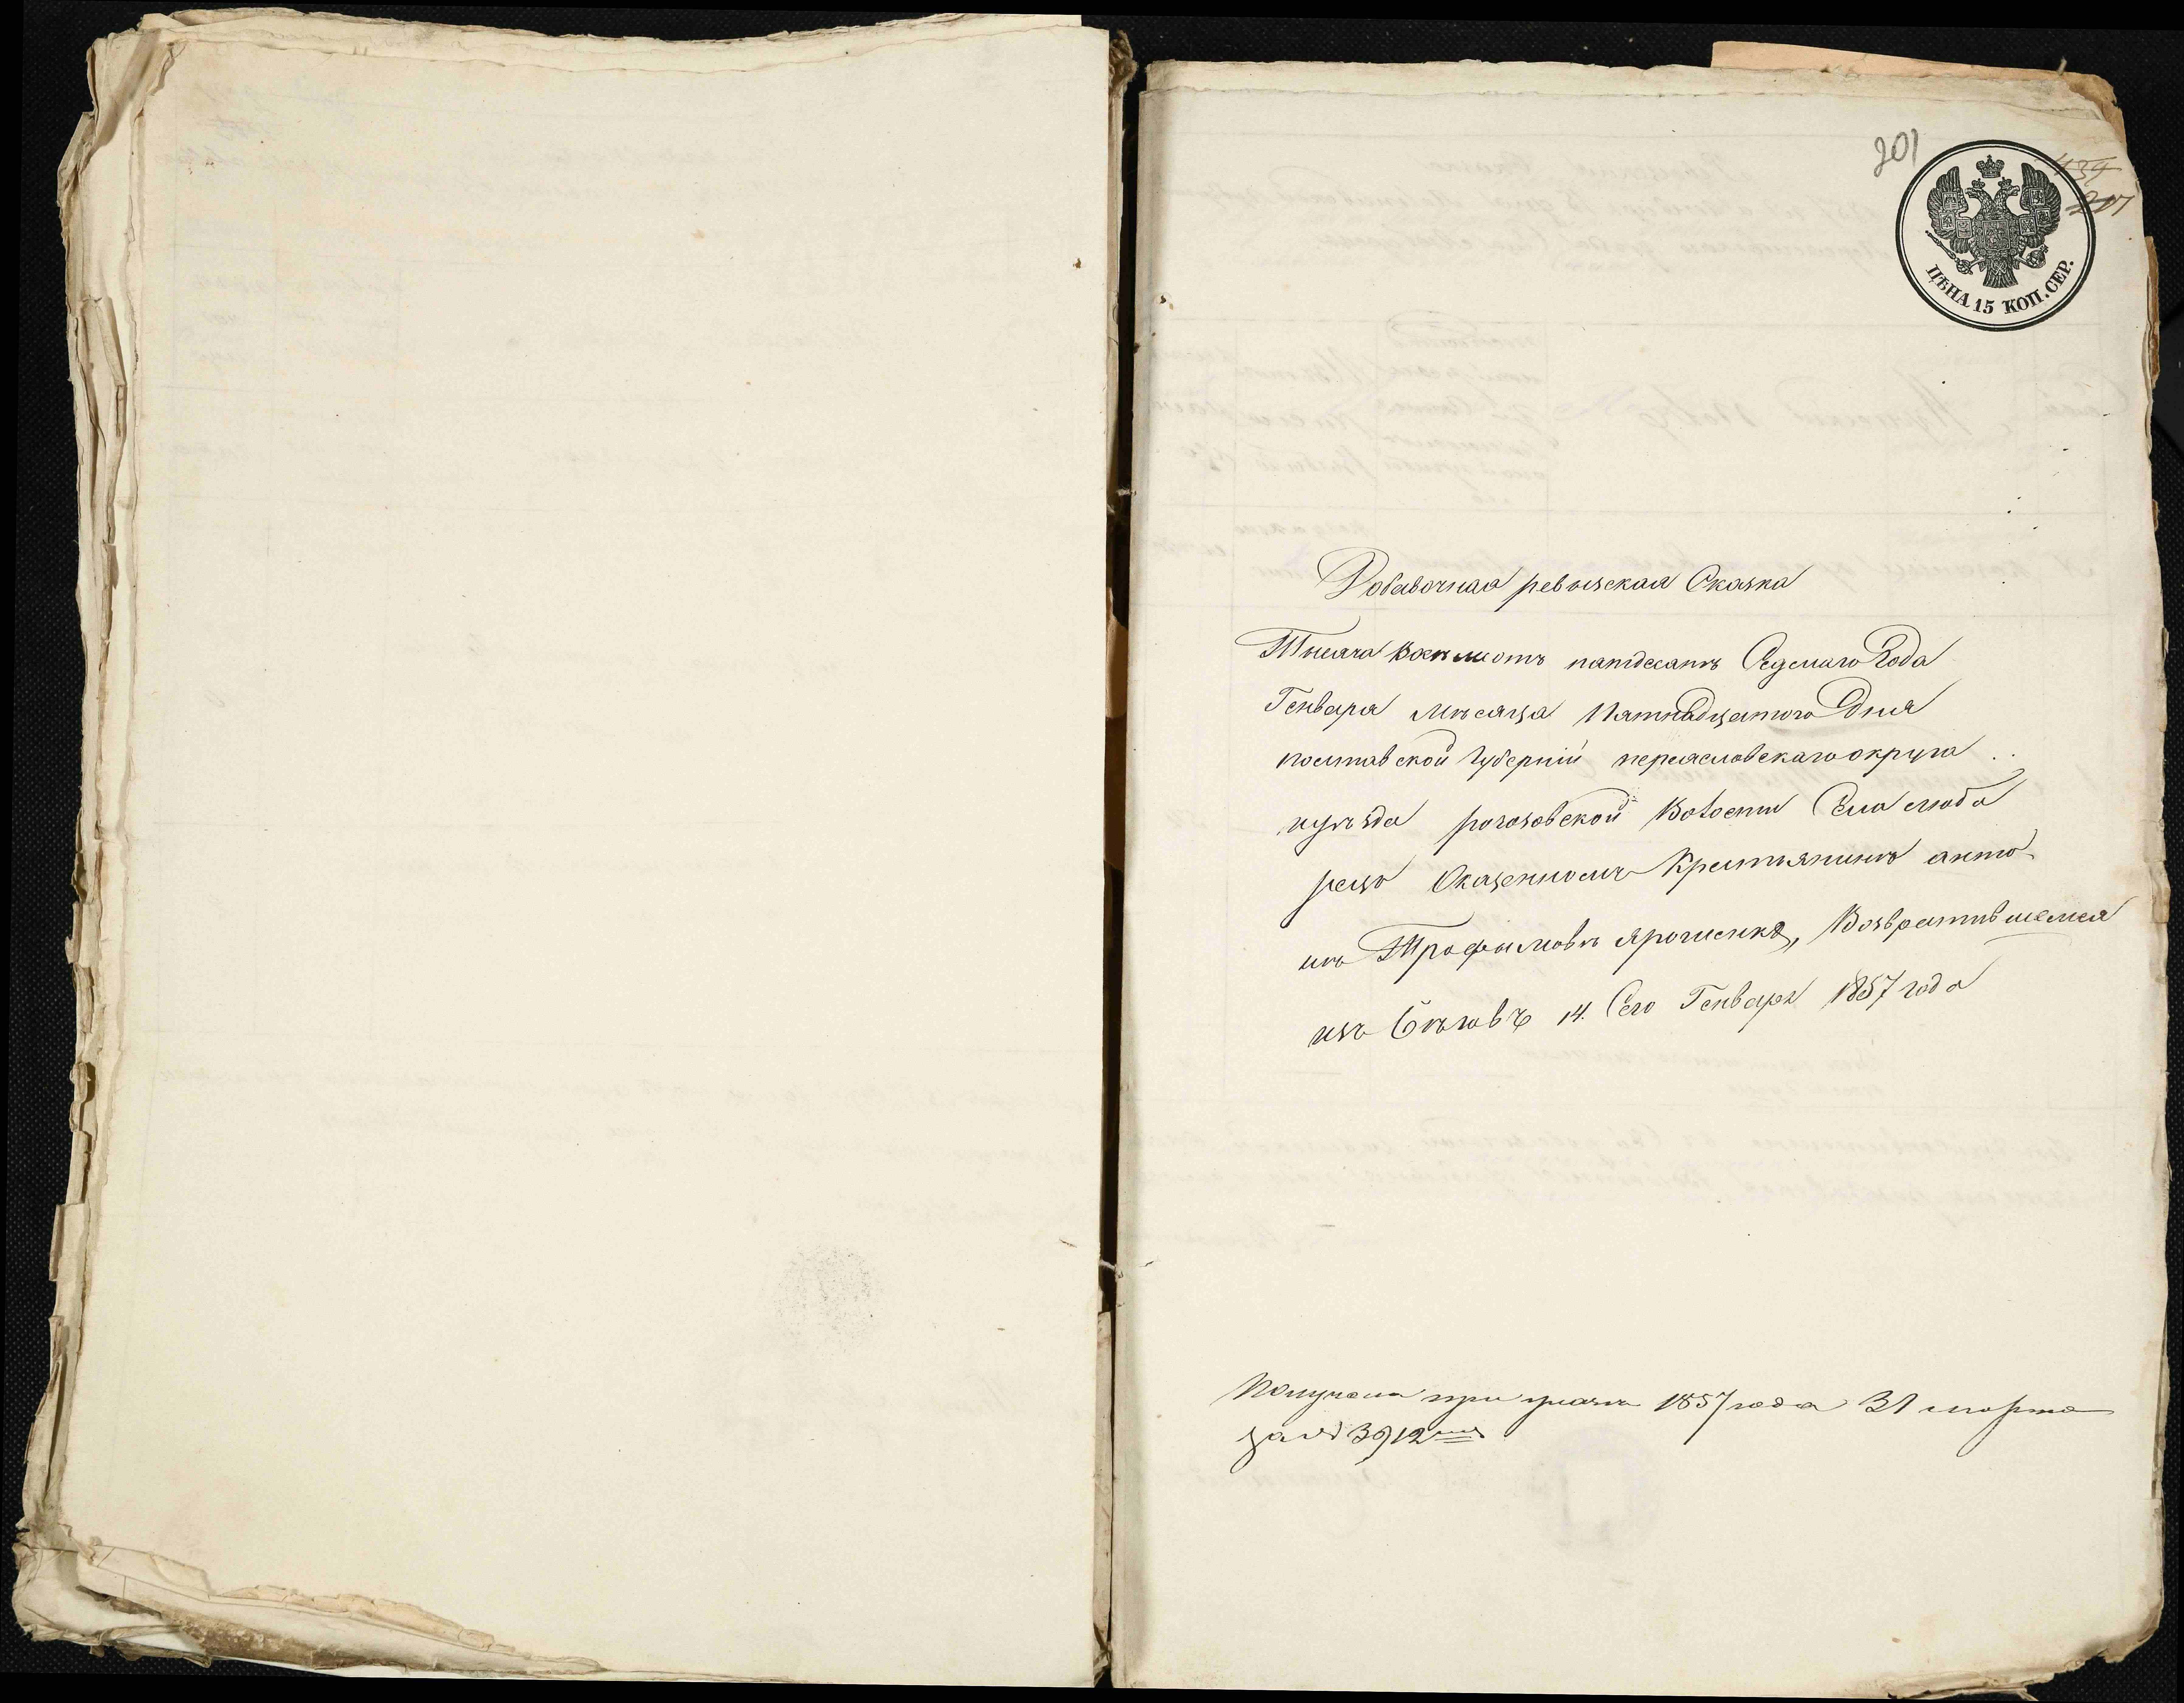 201
439
217
ЦѢНА 15 КОП. СЕР.
Добавочная ревызская Сказка
Тысяча восемсотъ пятдесятъ Седмаго Года
Генваря мѣсяца Пятнадцатого Дня
полтавской Губерніи переясловскаго округа
иуѣзда рогозовской Волости Села люба
рецъ Оказенномъ Крестьянинѣ анто
нѣ Трофымовѣ ярошенкѣ, Возвратившемся
изъ бѣговъ 14. Сего Генваря 1857 года
Получена при указѣ 1857 года 31 марта
за № 3912